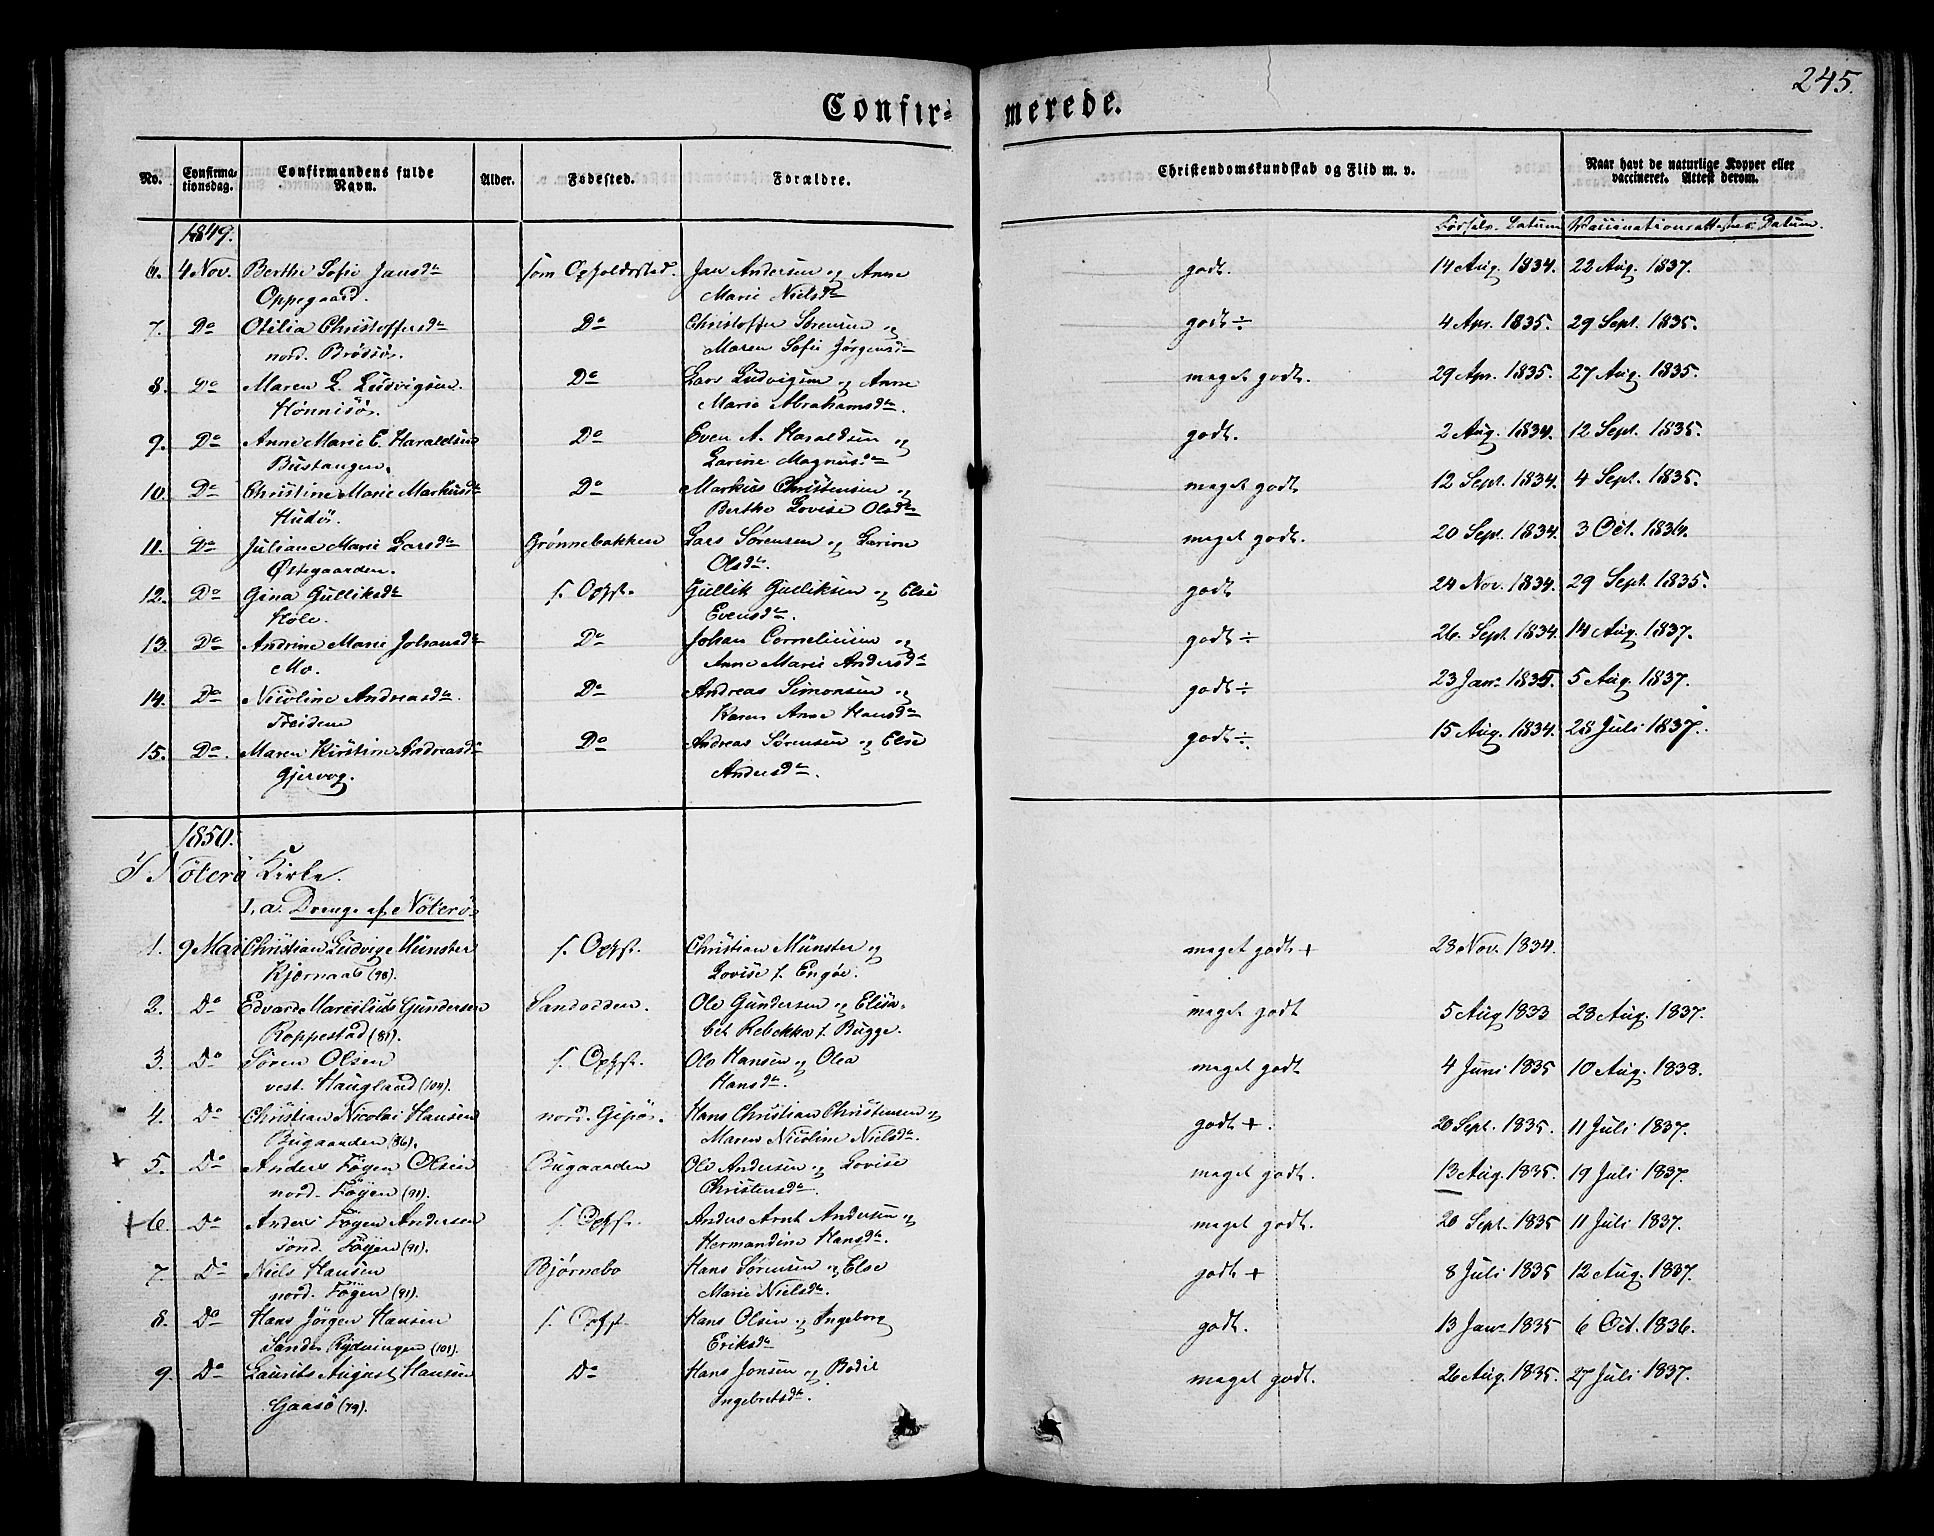 245.
Confir= merede.
No. Confirma-tionsdag. Confirmandens fulde Navn. Alder. Fødested. Forældre. Christendomskundskab og Flid m. v. Naar havt de naturlige Kopper eller vaccineret. Attest derom.
1849. Fødselv. Datum Vaccinationsattestens Datum.
6. 4 Nov. Berthe Sofie Jansdtr som Opholdssted. Jan Andersen og Anne godt. 14 Aug. 1834. 22 Aug. 1837.
Oppegaard. Marie Nielsdtr
7. Do Otilia Christoffersdtr Do Christoffer Sørensen og godt ÷ 4 Apr. 1835. 29 Sept. 1835.
nord. Brøtsø. Maren Sofie Jørgensdtr
8. Do Maren L. Ludvigsen. Do Lars Ludvigsen og Anne meget godt. 29 Apr. 1835. 27 Aug. 1835.
Hønnisø. Marie Abrahamsdtr.
9. Do Anne Marie E. Haraldsen Do Even A. Haraldsen og godt. 2 Aug. 1834. 12 Sept. 1835.
Bustangen. Larine Magnusdtr
10. Do Christine Marie Markusdtr Do Markus Christensen og meget godt 12 Sept. 1834. 4 Sept. 1835.
Hudø. Berthe Lovise Olsdtr
11. Do Juliane Marie Larsdtr Grønnebakken Lars Sørensen og Larine meget godt. 20 Sept. 1834. 3 Oct. 1834.
Østegaarden. Olsdtr.
12. Do Gina Gulliksdtr s. Opst. Gullik Gulliksen og Else godt 24 Nov. 1834. 29 Sept. 1835.
Hole. Evensdtr.
13. Do Andrine Marie Johansdtr Do Johan Corneliusen og godt ÷ 26. Sept. 1834. 14 Aug. 1837.
Mo. Anne Marie Andersdtr
14. Do Nicoline Andreasdtr. Do Andreas Simonsen og godt ÷ 23 Janr 1835. 5 Aug. 1837.
Treidene Karen Anne Hansdtr
15. Do. Maren Kirstine Andreasdtr Do Andreas Sørensen og Else godt ÷. 15 Aug. 1834. 28 Juli 1837.
Gjervog. Andersdtr.
1850.
I Nøterø Kirke.
1, a. Drenge af Nøterø
1. 9 Mai Christian Ludvig Münster s. Opst. Christian Münster og meget godt + 23 Nov. 1834.
Kjærnaas (98). Lovise f. Engøe.
2. Do Edvard Marcilius Gundersen Sandodden. Ole Gundersen og Elisa- meget godt 5 Aug 1833 28 Aug. 1837.
Roppestad (81). bet Rebekka f. Bugge.
3. Do Søren Olsen s. Opst. Ole Hansen og Olea meget godt 4 Juni 1835 10 Aug. 1838.
vest. Haugland (104). Hansdtr.
4. Do Christian Nicolai Hansen nord. Gipø. Hans Christian Christensen og godt +. 20 Sept. 1835. 11 Juli 1837.
Bugaarden (86). Maren Nicoline Nielsdtr.
+ 5. Do Anders Føyen Olsen Bugaarden Ole Andersen og Lovise meget godt. 13 Aug. 1835. 19 Juli 1837.
nord. Føyen (91). Christensdtr.
+ 6. Do Anders Føyen Andersen s. Opst. Anders Arnt Andersen og meget godt. 20 Sept. 1835 11 Juli 1837.
sønd. Føyen (91). Hermandine Hansdtr.
7. Do Niels Hansen Bjørnebo Hans Sørensen og Else godt + 8 Juli 1835 12 Aug. 1837.
nord. Føyen (91). Marie Nielsdtr.
8. Do Hans Jørgen Hansen s. Opst Hans Olsen og Ingeborg godt. 13 Janr 1835 6 Oct. 1836.
Sandø Rydningen (101). Eriksdtr
9. Do Laurits August Hansen Do Hans Jonsen og Bodil meget godt. 26 Aug. 1835. 27 Juli 1837.
Gaasø (79). Ingebretsdtr.